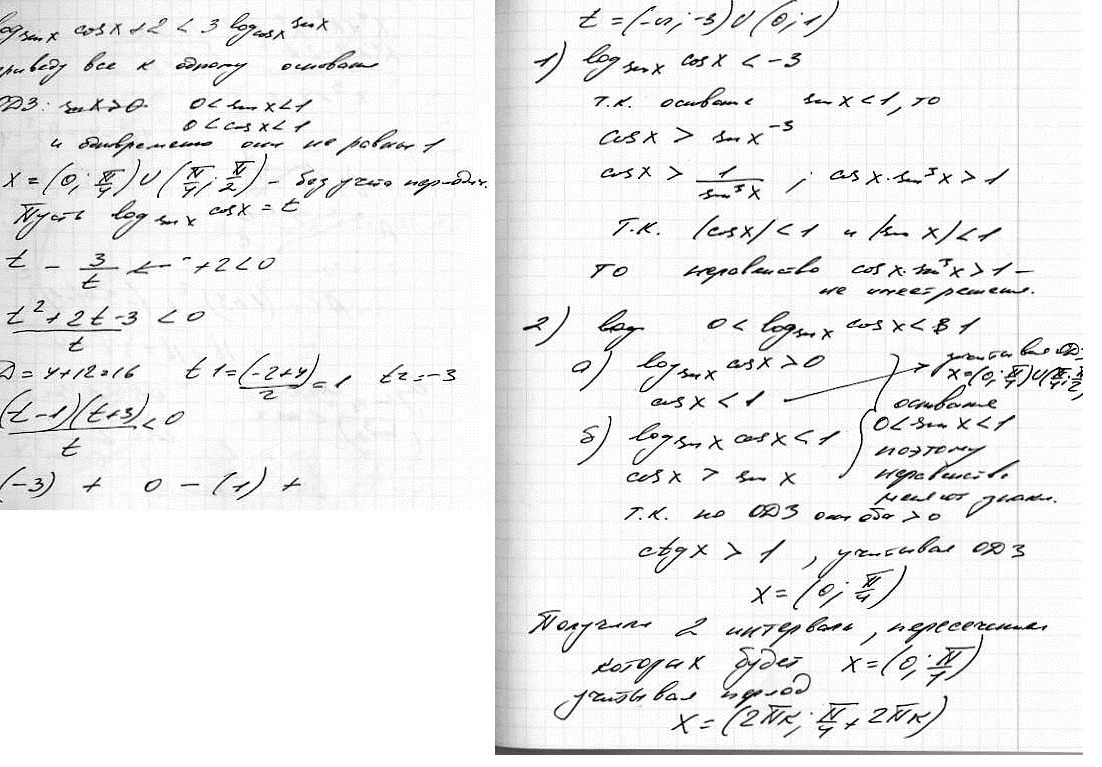 log sinx cosx + 2 < 3 log cosx sinx
приведу все к одному основан
ОДЗ: sinx>0. 0<sinx<1
0<cosx<1
и одновременно они не равны 1
x = (0; π/4) ∪ (π/4; π/2) – без учета период.
Пусть log sinx cosx = t
t - 3/t + 2 < 0
(t² + 2t - 3)/t < 0
D = 4+12=16 t1 = (-2+4)/2 = 1 t2 = -3
(t-1)(t+3)/t < 0
(-3) + 0 - (1) +
t = (-∞; -3) ∪ (0; 1)
1) log sinx cosx < -3
т.к. основание sinx<1, то
cosx > sinx⁻³
cosx > 1/sin³x ; cosx·sin³x > 1
т.к. |cosx|<1 и |sinx|<1
то неравенство cosx·sin³x>1 –
не имеет решения.
2) log 0 < log sinx cosx < 1
а) log sinx cosx > 0
учитывая ОДЗ
x=(0; π/4)∪(π/4; π/2)
cosx < 1
основание
0<sinx<1
б) log sinx cosx < 1
поэтому
cosx > sinx
неравенство
меняет знаки.
т.к. по ОДЗ они оба > 0
ctgx > 1, учитывая ОДЗ
x = (0; π/4)
Получили 2 интервала, пересечением
которых будет x=(0; π/4)
учитывая период
x = (2πк; π/4 + 2πк)